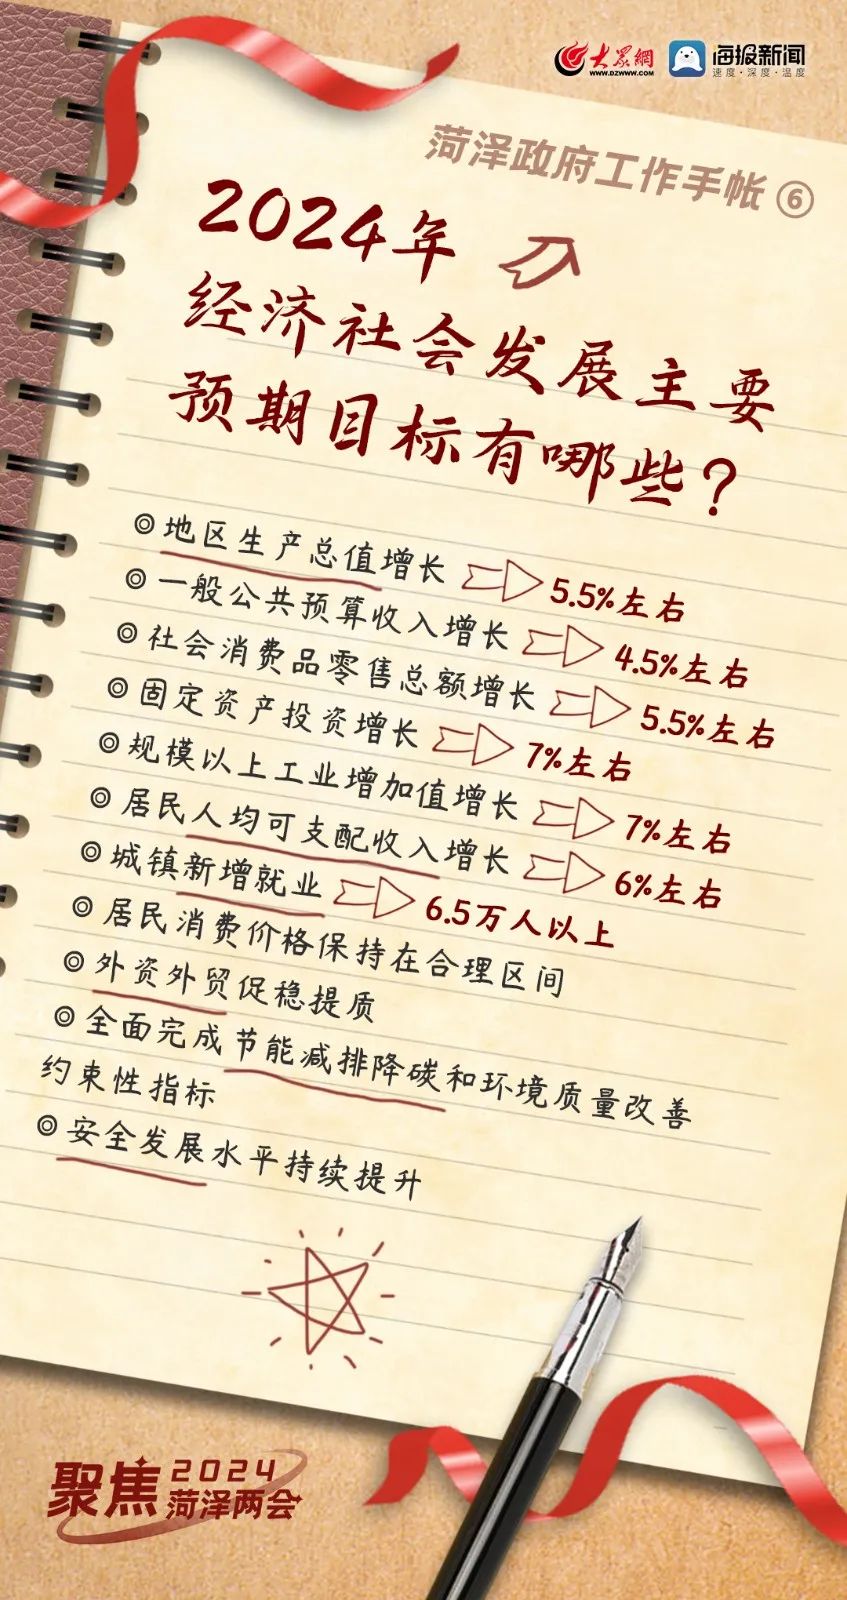 大众網
www.dzwww.com
海报新闻
速度·深度·温度
菏泽政府工作手帐⑥
2024年
经济社会发展主要
预期目标有哪些?
◎地区生产总值增长 5.5%左右
◎一般公共预算收入增长 4.5%左右
◎社会消费品零售总额增长 5.5%左右
◎固定资产投资增长 7%左右
◎规模以上工业增加值增长 7%左右
◎居民人均可支配收入增长 6%左右
◎城镇新增就业 6.5万人以上
◎居民消费价格保持在合理区间
◎外资外贸促稳提质
◎全面完成节能减排降碳和环境质量改善
约束性指标
◎安全发展水平持续提升
聚焦2024
菏泽两会